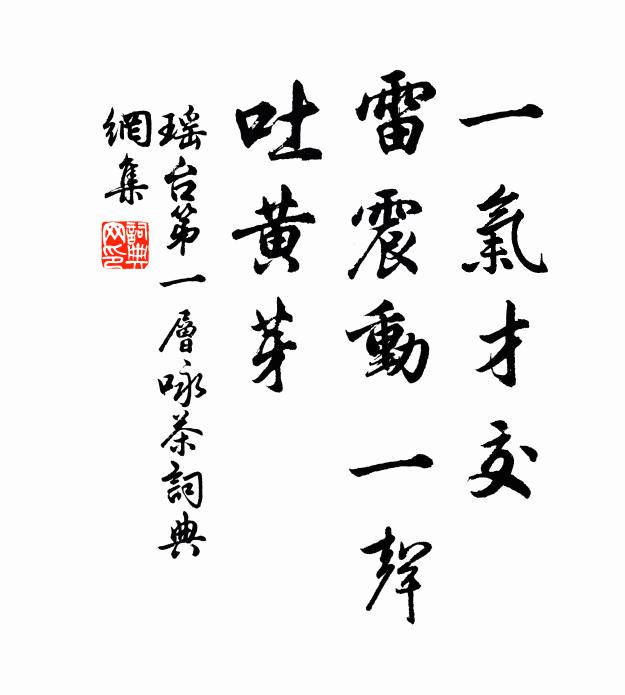 一氣才交
雷震動一聲
吐黃芽
瑶台第一層咏茶詞典
網集
詞典
网印